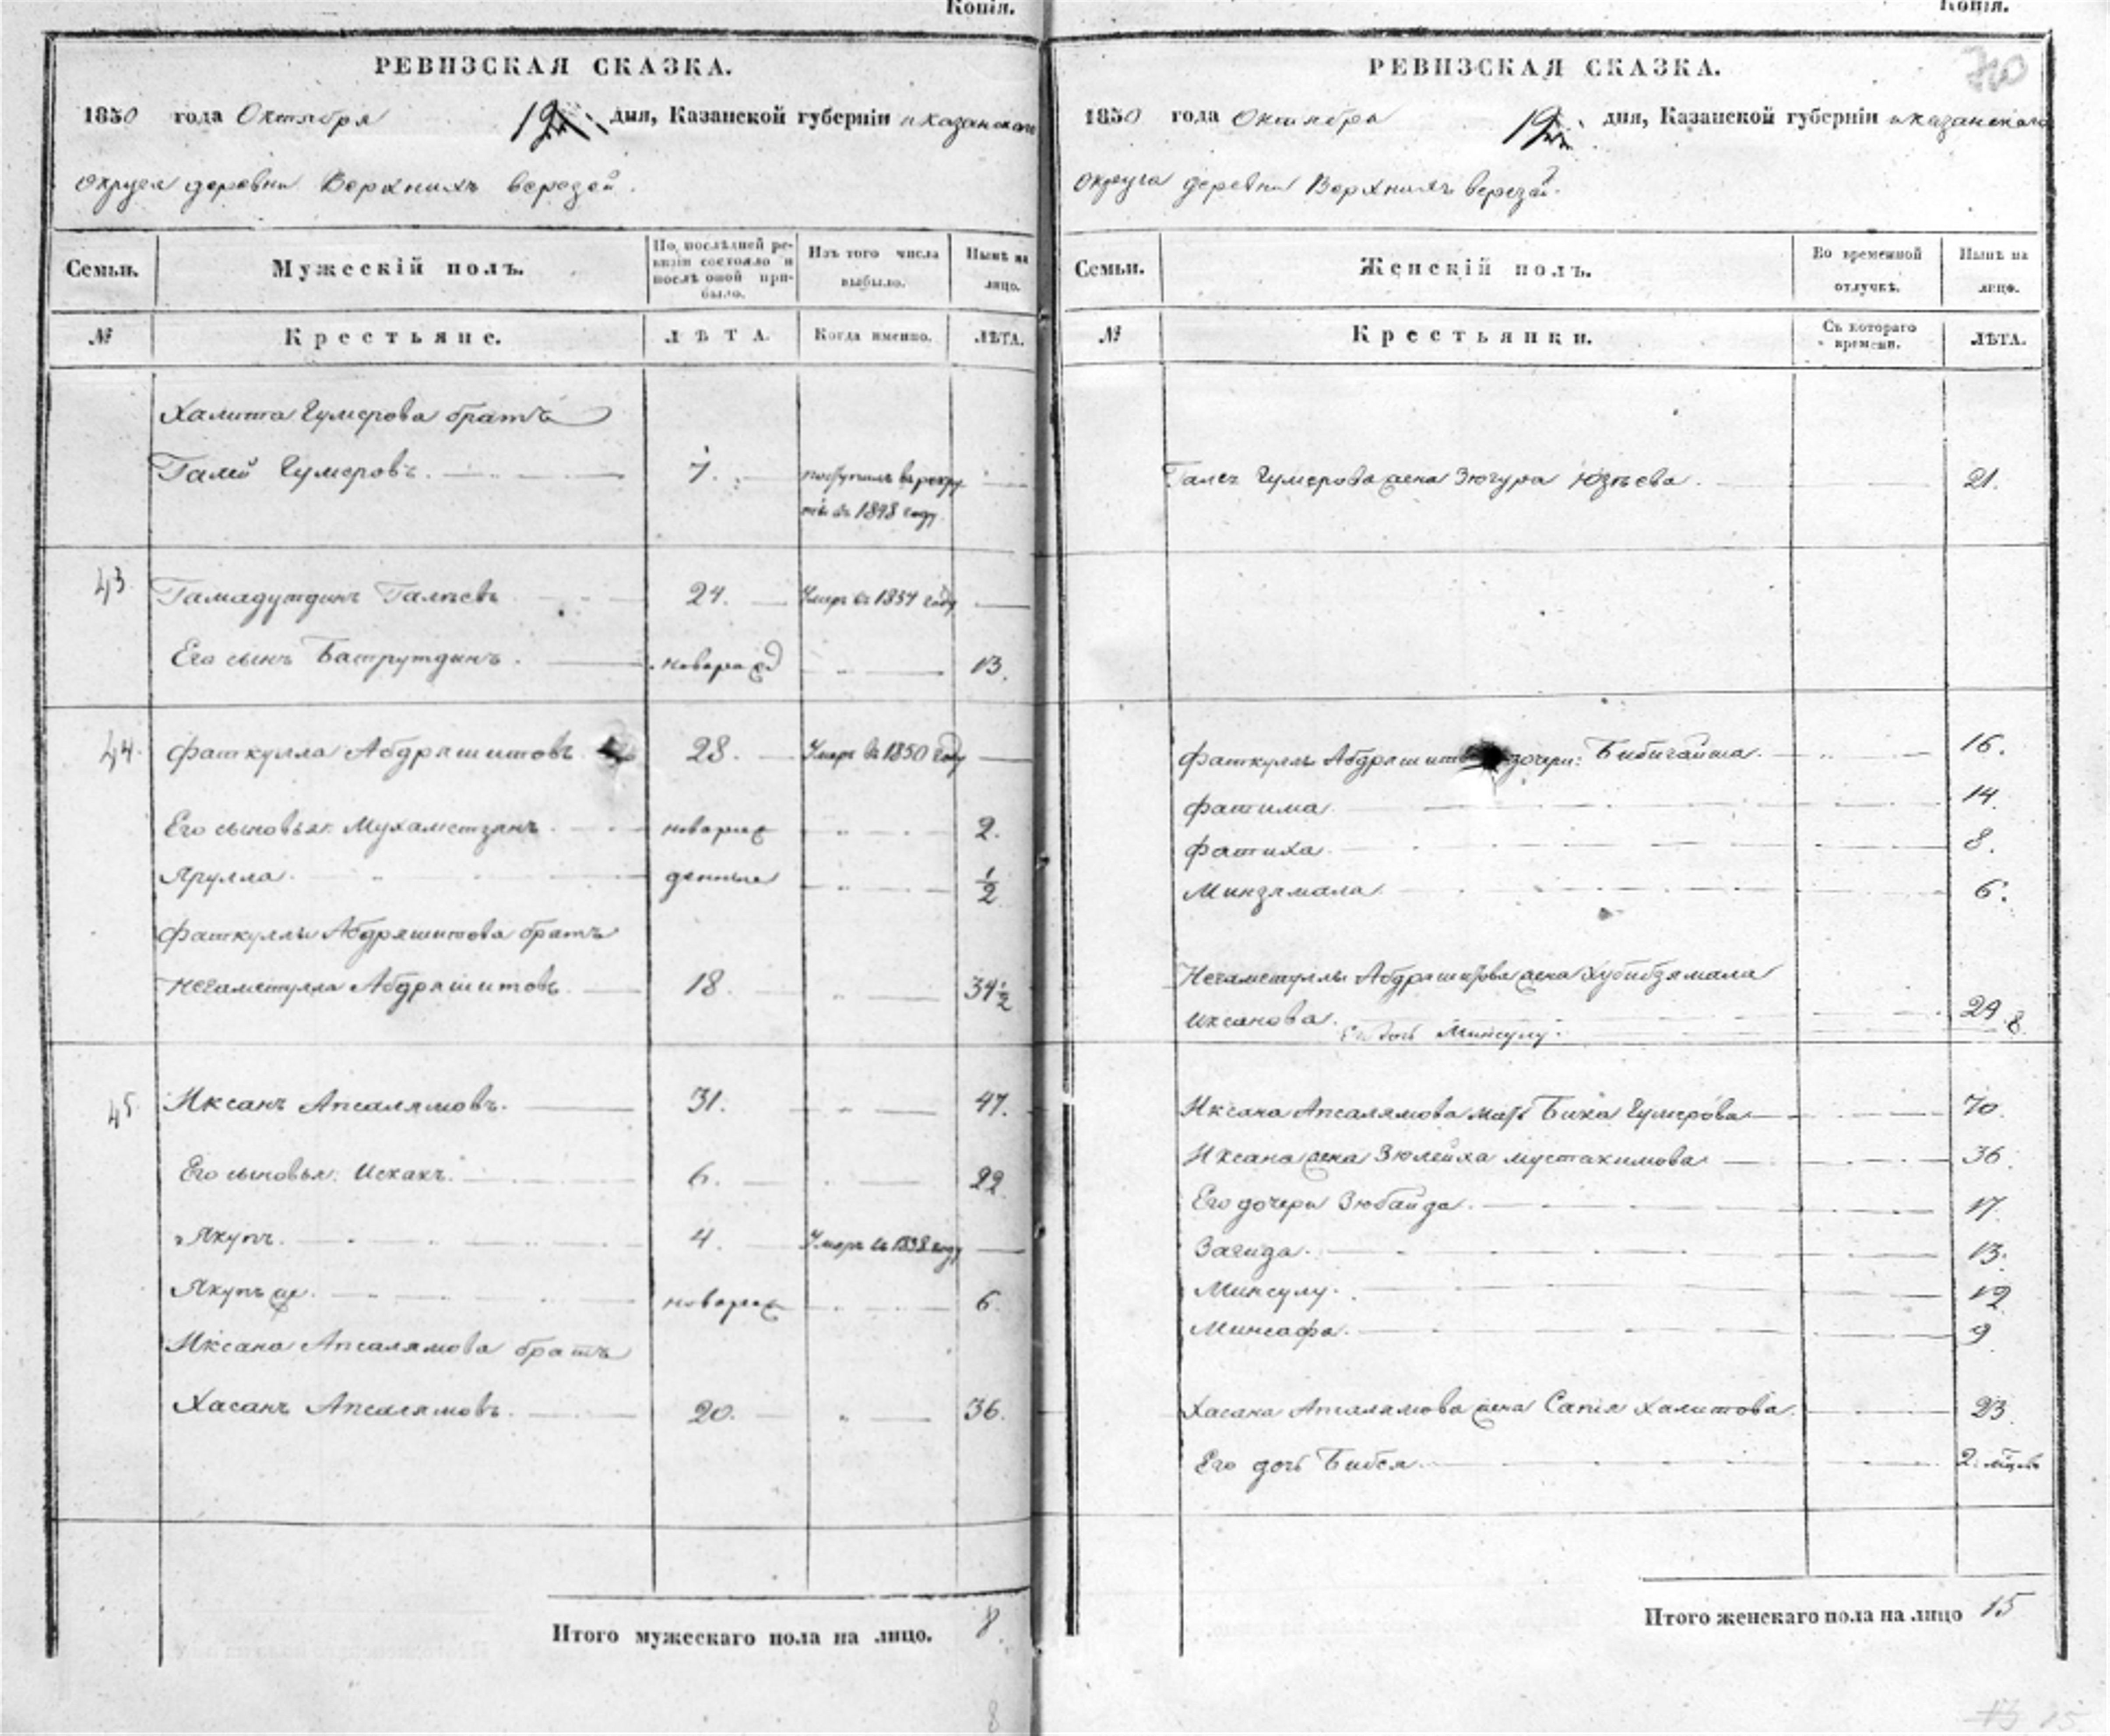 Копія.
РЕВИЗСКАЯ СКАЗКА.
1850 года Октября 12 дня, Казанской губерніи и казанскаго
округа деревни Верхнихъ верезей.
Семьи.
Мужескій полъ.
По послѣдней ре-
визіи состояло и
послѣ оной при-
было.
Изъ того числа
выбыло.
Нынѣ на
лицо.
№
Крестьяне.
ЛѢТА.
Когда именно.
ЛѢТА.
Халита Гумерова братъ
Галей Гумеровъ. 7. поступилъ въ рекру
ты въ 1848 году
43 Гамадутдинъ Галѣевъ 24. Умеръ въ 1834 году
Его сынъ Батрутдинъ. новорожд 13.
44. Фаткулла Абдряшитовъ 28. Умеръ въ 1850 году
Его сыновья: Мухаметзянъ новорож 2.
Ярулла. денные 1/2
Фаткуллы Абдряшитова братъ
Негаметулла Абдряшитовъ 18. 34 1/2
45. Иксанъ Апсалямовъ. 31. 47.
Его сыновья: Исхакъ. 6. 22
Якупъ. 4. Умеръ въ 1838 году
Якупъ же. новорож 6.
Иксана Апсалямова братъ
Хасанъ Апсалямовъ. 20. 36.
Итого мужескаго пола на лицо. 8.
8
Копія.
РЕВИЗСКАЯ СКАЗКА.
740
1850 года Октября 12 дня, Казанской губерніи и казанскаго
округа деревни Верхнихъ верезей.
Семьи.
Женскій полъ.
Во временной
отлучкѣ.
Нынѣ на
лицо.
№
Крестьянки.
Съ котораго
времени.
ЛѢТА.
Галея Гумерова жена Зюгура Юзѣева. 21.
Фаткуллы Абдряшитова дочери: Бибигайша. 16.
Фатима 14.
Фатиха. 8.
Минзямала 6.
Негаметуллы Абдряшитова жена Хубибзямала
Иксанова. Его дочь Минсулу. 29. 8.
Иксана Апсалямова мать Бика Гумерова 70.
Иксана жена Зюлейха мустакимова 36.
Его дочери Зюбайда. 17.
Загида. 13.
Минсулу. 12
Минсафа. 9
Хасана Апсалямова жена Сапія Халитова. 23.
Его дочь Бибея. 2.
Итого женскаго пола на лицо 15
13 15